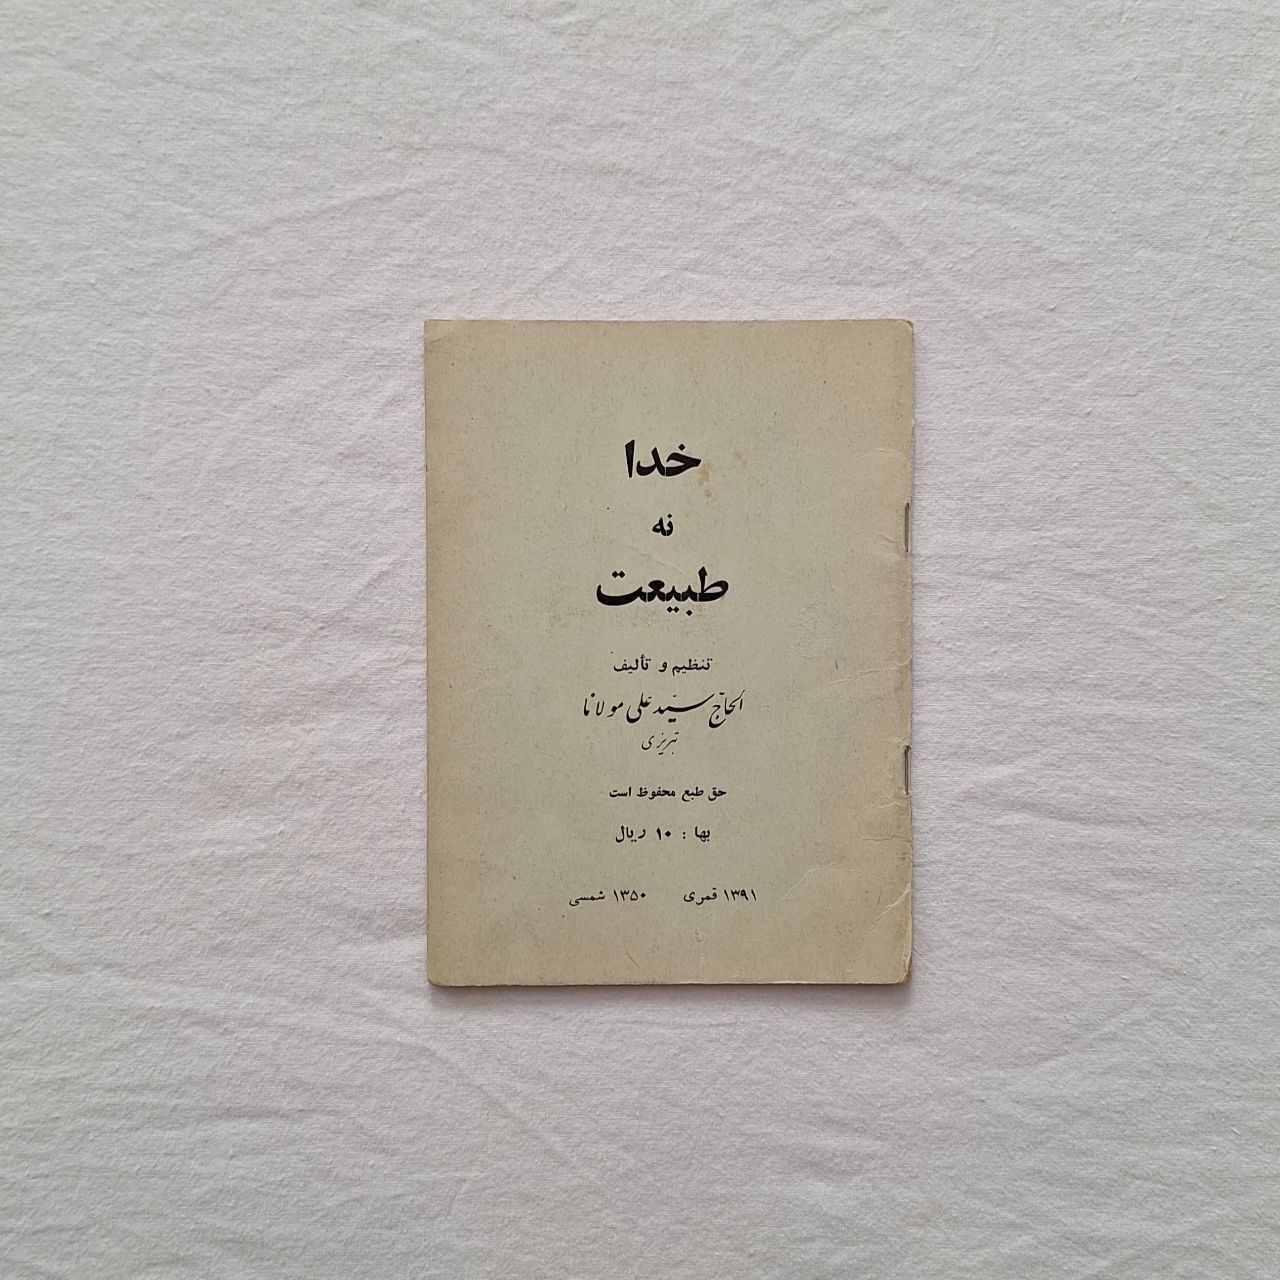 خدا
نه
طبیعت
تنظیم و تألیف
الحاجّ سیّد علی مولانا
تبریزی
حق طبع محفوظ است
بها : ۱۰ ریال
۱۳۹۱ قمری ۱۳۵۰ شمسی